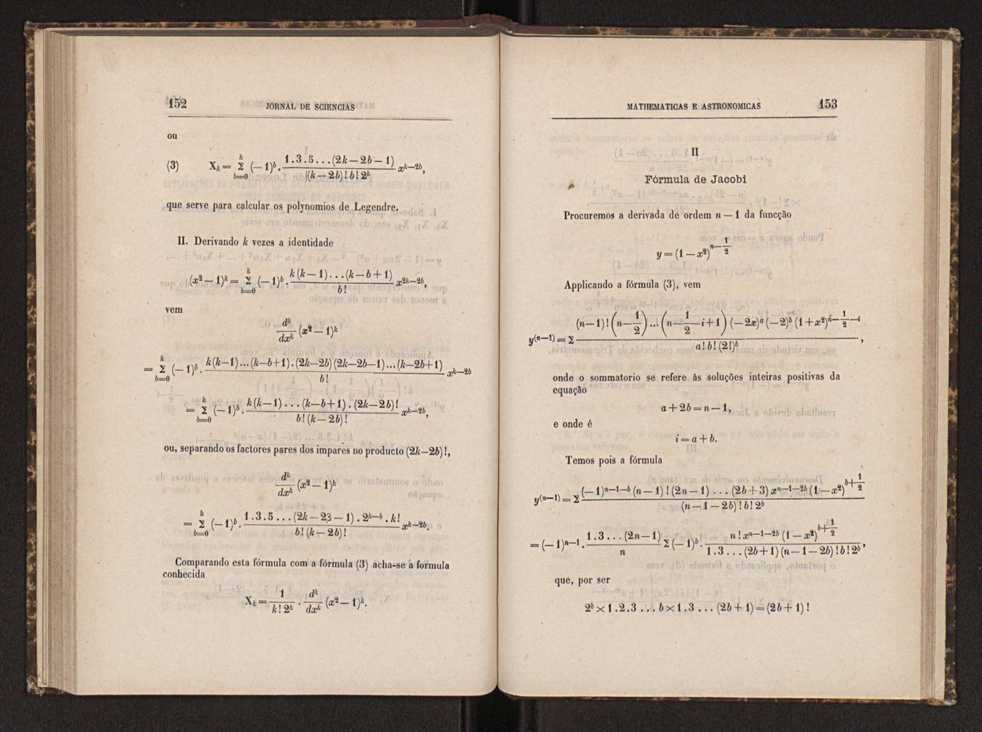 152 JORNAL DE SCIENCIAS
ou
(3) X_k = Σ_{b=0}^{k} (−1)^b . \frac{1.3.5...(2k−2b−1)}{(k−2b)! b! 2^b} x^{k−2b},
que serve para calcular os polynomios de Legendre.
II. Derivando k vezes a identidade
(x²−1)^k = Σ_{b=0}^{k} (−1)^b . \frac{k(k−1)...(k−b+1)}{b!} x^{2k−2b},
vem
\frac{d^k}{dx^k} (x²−1)^k
= Σ_{b=0}^{k} (−1)^b . \frac{k(k−1)...(k−b+1).(2k−2b)(2k−2b−1)...(k−2b+1)}{b!} x^{k−2b}
= Σ_{b=0}^{k} (−1)^b . \frac{k(k−1)...(k−b+1).(2k−2b)!}{b!(k−2b)!} x^{k−2b},
ou, separando os factores pares dos impares no producto (2k−2b)!,
\frac{d^k}{dx^k} (x²−1)^k
= Σ_{b=0}^{k} (−1)^b . \frac{1.3.5...(2k−23−1).2^{k−b}.k!}{b!(k−2b)!} x^{k−2b}.
Comparando esta fórmula com a fórmula (3) acha-se a formula
conhecida
X_k = \frac{1}{k! 2^k} . \frac{d^k}{dx^k} (x²−1)^k.
MATHEMATICAS E ASTRONOMICAS 153
II
Fórmula de Jacobi
Procuremos a derivada de ordem n−1 da funcção
y = (1−x²)^{n−\frac{1}{2}}
Applicando a fórmula (3), vem
y^{(n−1)} = Σ \frac{(n−1)! (n−\frac{1}{2})...(n−\frac{1}{2}−i+1) (−2x)^a (−2)^b (1+x²)^{i−\frac{1}{2}−i}}{a! b! (2!)^b},
onde o sommatorio se refere às soluções inteiras positivas da
equação
a+2b=n−1,
e onde é
i=a+b.
Temos pois a fórmula
y^{(n−1)} = Σ \frac{(−1)^{n−1−b} (n−1)! (2n−1)...(2b+3) x^{n−1−2b} (1−x²)^{b+\frac{1}{2}}}{(n−1−2b)! b! 2^b}
= (−1)^{n−1} . \frac{1.3...(2n−1)}{n} Σ (−1)^b . \frac{n! x^{n−1−2b} (1−x²)^{b+\frac{1}{2}}}{1.3...(2b+1)(n−1−2b)! b! 2^b},
que, por ser
2^b×1.2.3...b×1.3...(2b+1)=(2b+1)!